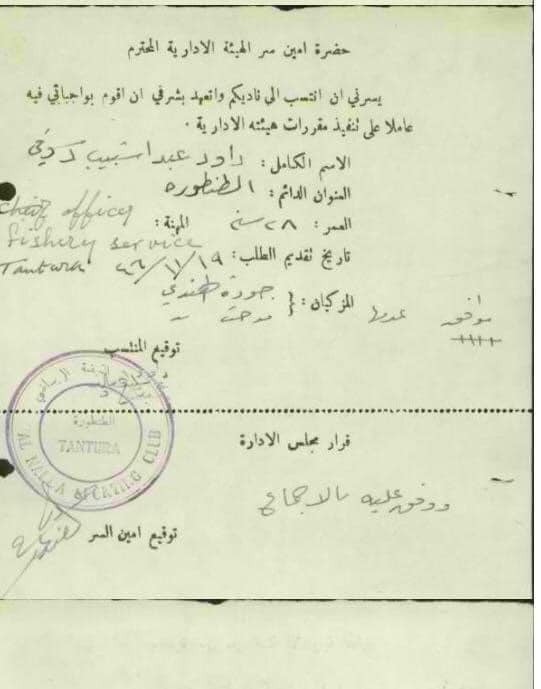 حضرة امين سر الهيئة الادارية المحترم
يسرني ان انتسب الى ناديكم واتعهد بشرفي ان اقوم بواجباتي فيه
عاملا على تنفيذ مقررات هيئته الادارية .
الاسم الكامل : داود عبد
العنوان الدائم : الطنطوره
العمر : ٢٨ سنة المهنة :
Cheif officer
Fishery service
Tantura
تاريخ تقديم الطلب : ١٩/١١/٤٦
المزكيان : { جودة هندي
موافق
توقيع المنتسب
الطنطورة
TANTURA
SPORTING CLUB
قرار مجلس الادارة
ووفق عليه بالاجماع
توقيع امين السر